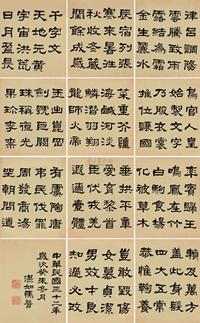 千字文
天地元黃
宇宙洪荒
日月盈昃
辰宿列張
寒來暑往
秋收冬藏
閏餘成歲
律呂調陽
雲騰致雨
露結為霜
金生麗水
玉出崑岡
劍號巨闕
珠稱夜光
果珍李柰
菜重芥薑
海鹹河淡
鱗潛羽翔
龍師火帝
鳥官人皇
始制文字
乃服衣裳
推位讓國
有虞陶唐
弔民伐罪
周發殷湯
坐朝問道
垂拱平章
愛育黎首
臣伏戎羌
遐邇壹體
率賓歸王
鳴鳳在樹
白駒食場
化被草木
賴及萬方
蓋此身髮
四大五常
恭惟鞠養
豈敢毀傷
女慕貞潔
男效才良
知過必改
中華民國三十二年
歲次癸未冬月
湛如馮